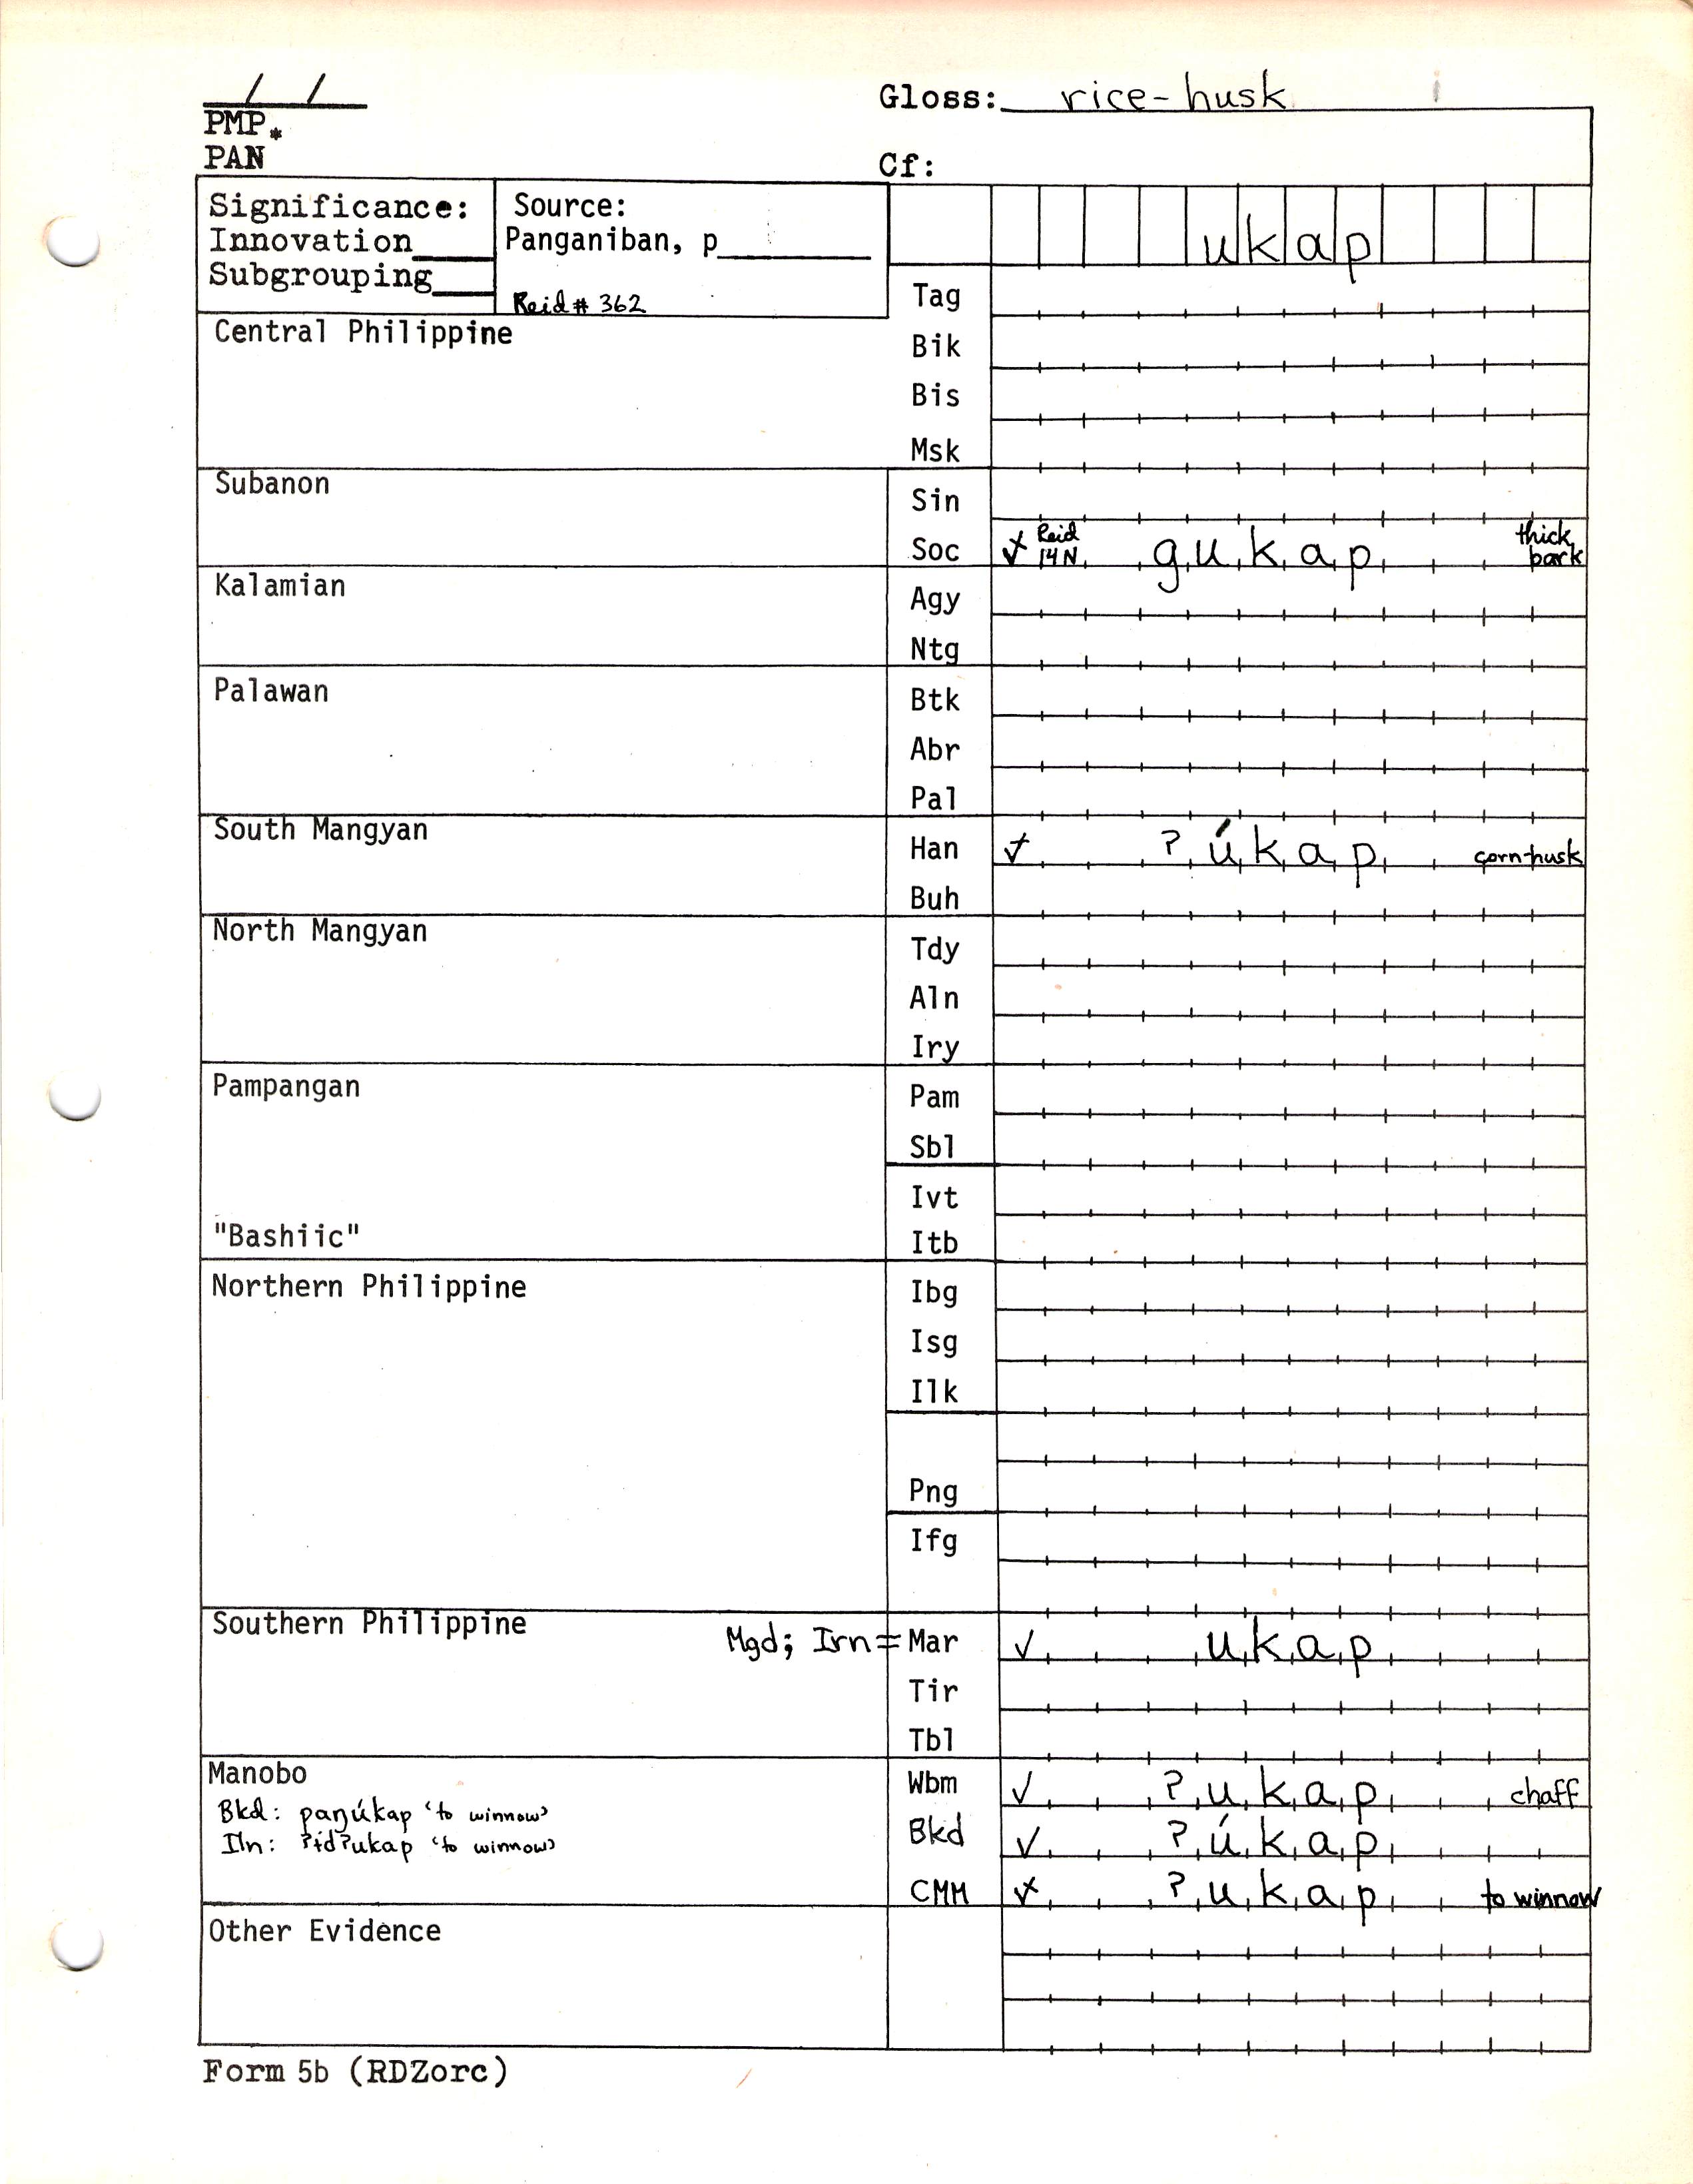 / /
Gloss: rice-husk
PMP*
PAN
Cf:
Significance:
Innovation
Subgrouping
Source:
Panganiban, p
Reid # 362
ukap
Tag
Central Philippine
Bik
Bis
Msk
Subanon
Sin
Soc ✓ Reid 14N gukap thick bark
Kalamian
Agy
Ntg
Palawan
Btk
Abr
Pal
South Mangyan
Han ✓ ʔúkap corn-husk
Buh
North Mangyan
Tdy
Aln
Iry
Pampangan
Pam
Sbl
Ivt
"Bashiic"
Itb
Northern Philippine
Ibg
Isg
Ilk
Png
Ifg
Southern Philippine
Mgd; Irn = Mar ✓ ukap
Tir
Tbl
Manobo
Wbm ✓ ʔukap chaff
Bkd: paŋúkap ‘to winnow’
Bkd ✓ ʔúkap
Iln: ʔɨdʔukap ‘to winnow’
CMM ✓ ʔukap to winnow
Other Evidence
Form 5b (RDZorc)